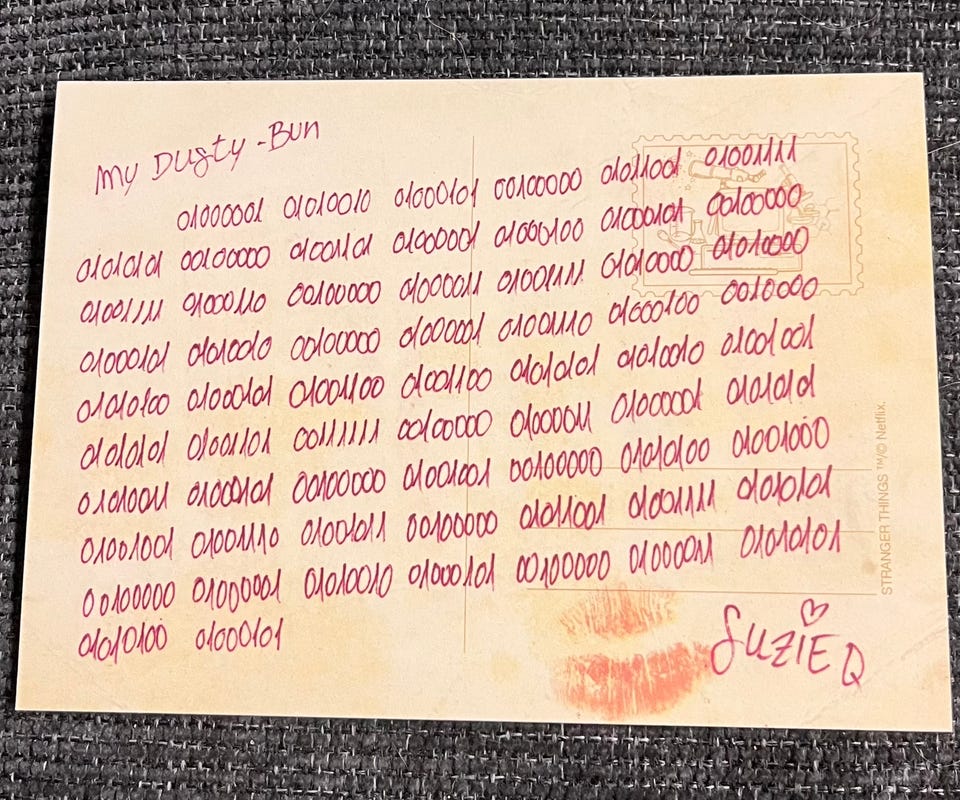 My Dusty-Bun
01000001 01010010 01000101 00100000 01011001 01001111
01010101 00100000 01001101 01000001 01000100 01000101 00100000
01001111 01000110 00100000 01000011 01001111 01010000 01010000
01000101 01010010 00100000 01000001 01001110 01000100 0010000
01010100 01000101 01001100 01001100 01010101 01010010 01001001
01010101 01001101 00111111 00100000 01000011 01000001 01010101
01010011 01000101 00100000 01001001 00100000 01010100 01001000
01001001 01001110 01001011 00100000 01011001 01001111 01010101
00100000 01000001 01010010 01000101 00100000 01000011 01010101
01010100 01000101
SUZIE Q
STRANGER THINGS ™/© Netflix.